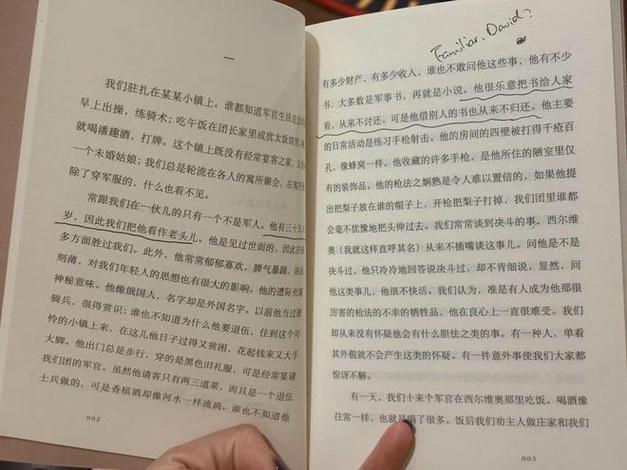 一
我们驻扎在某某小镇上。谁都知道军官生活是怎
早上出操，练骑术；吃午饭在团长家里或犹太饭馆
就喝潘趣酒，打牌。这个镇上既没有经常宴客之家，又
一个未婚姑娘；我们总是轮流在各人的寓所聚会，在
除了穿军服的，什么也看不见。
常跟我们在一伙儿的只有一个不是军人。他有三十五
岁，因此我们把他看作老头儿。他是见过世面的，因此在
多方面胜过我们。此外，他常常郁郁寡欢，脾气暴躁，说
刻薄，对我们年轻人的思想也有很大的影响。他的遭际充满
神秘意味。他像俄国人，名字却是外国名字。以前他当过骠
骑兵，很得赏识；谁也不知道为什么他要退伍，住到这个可
怜的小镇上来，在这儿他日子过得又贫困，花起钱来又大手
大脚。他出门总是步行，穿的是黑色旧礼服，可是经常宴请
我们团的军官。虽然他请客只有两三道菜，而且是一个退伍
士兵做的，可是香槟酒却像河水一样流淌。谁也不知道他
002
Familiar, David?
有多少财产，有多少收入，谁也不敢问他这些事，他有不少
书，大多数是军事书，再就是小说。他很乐意把书给人家
看，从来不讨还。可是他借别人的书也从来不归还。他主要
的日常活动是练习手枪射击。他的房间的四壁被打得千疮百
孔，像蜂窝一样，他收藏的许多手枪，是他所住的陋室里仅
有的装饰品。他的枪法之娴熟是令人难以置信的，如果他提
出把梨子放在谁的帽子上，开枪把梨子打掉，我们团里谁都
会毫不犹豫地把头伸过去。我们常常谈到决斗的事。西尔维
奥（我就这样直呼其名）从来不插嘴谈这事儿。问他是不是
决斗过，他只冷冷地回答说决斗过，却不肯细说，显然，问
他这类事儿，他很不快活。我们认为，准是有人成为他那很
厉害的枪法的不幸的牺牲品，他在良心上一直很难受。我们
却从来没有怀疑他会有什么胆怯之类的事。有一种人，单看
其外貌就不会产生这类的怀疑。有一件意外事使我们大家都
惊讶不解。
有一天，我们十来个军官在西尔维奥那里吃饭。喝酒像
往常一样，也就是喝了很多。饭后我们劝主人做庄家和我们
003